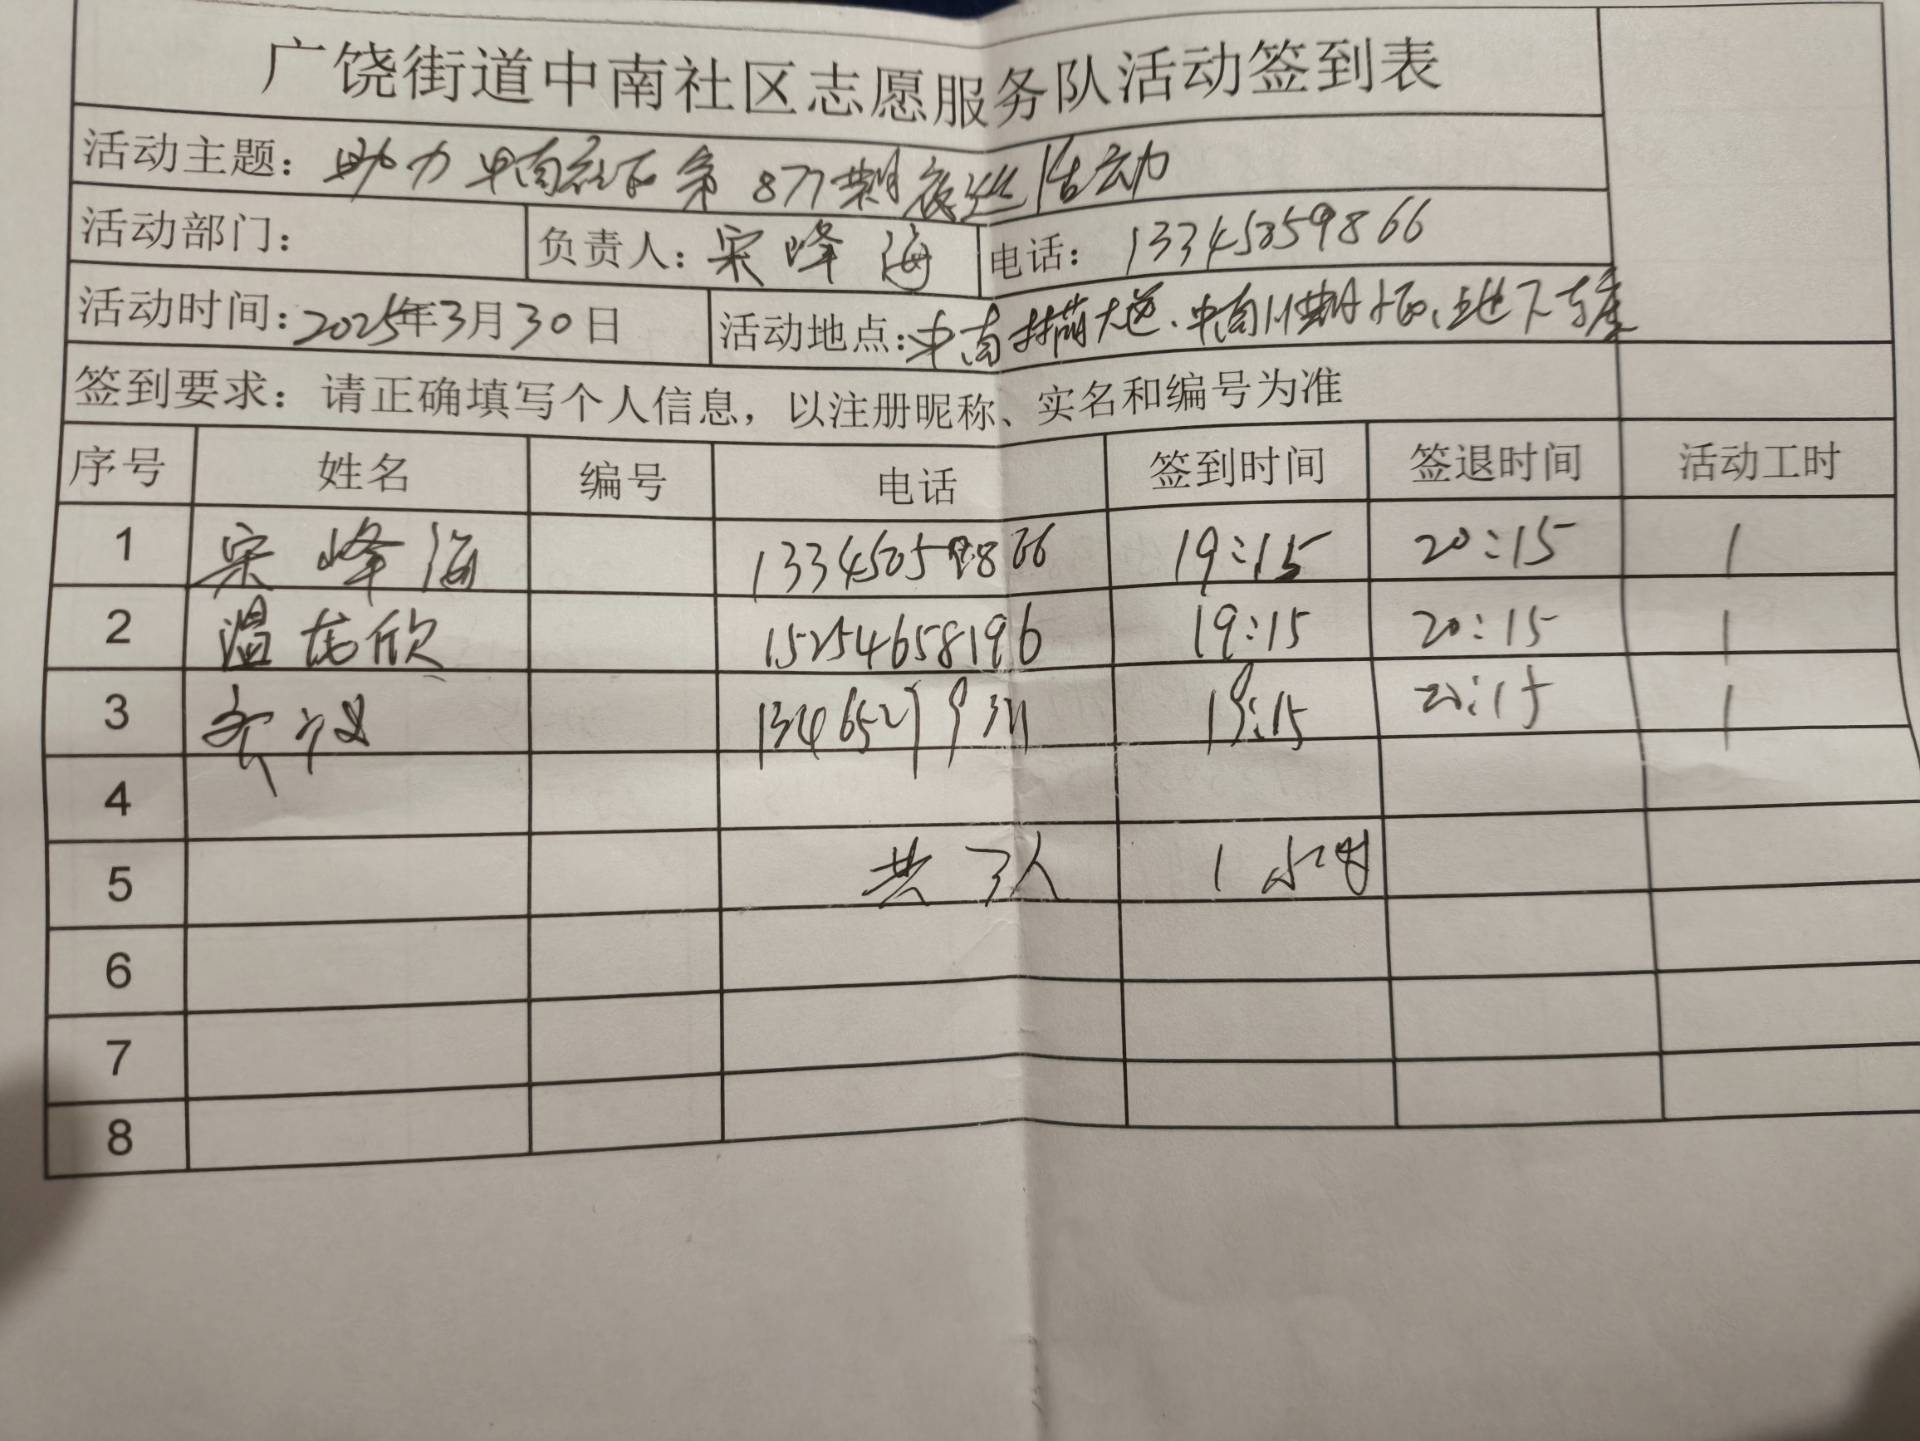 广饶街道中南社区志愿服务队活动签到表
活动主题：助力中南社区第877期夜巡活动
活动部门： 负责人：宋峰海 电话：13345059866
活动时间：2025年3月30日 活动地点：中南 大道、中南 期小区、地下车库
签到要求：请正确填写个人信息，以注册昵称、实名和编号为准
序号 姓名 编号 电话 签到时间 签退时间 活动工时
1 宋峰海 13345059866 19:15 20:15 1
2 温 欣 15254658196 19:15 20:15 1
3 19:15 20:15 1
4
5 共3人 1小时
6
7
8